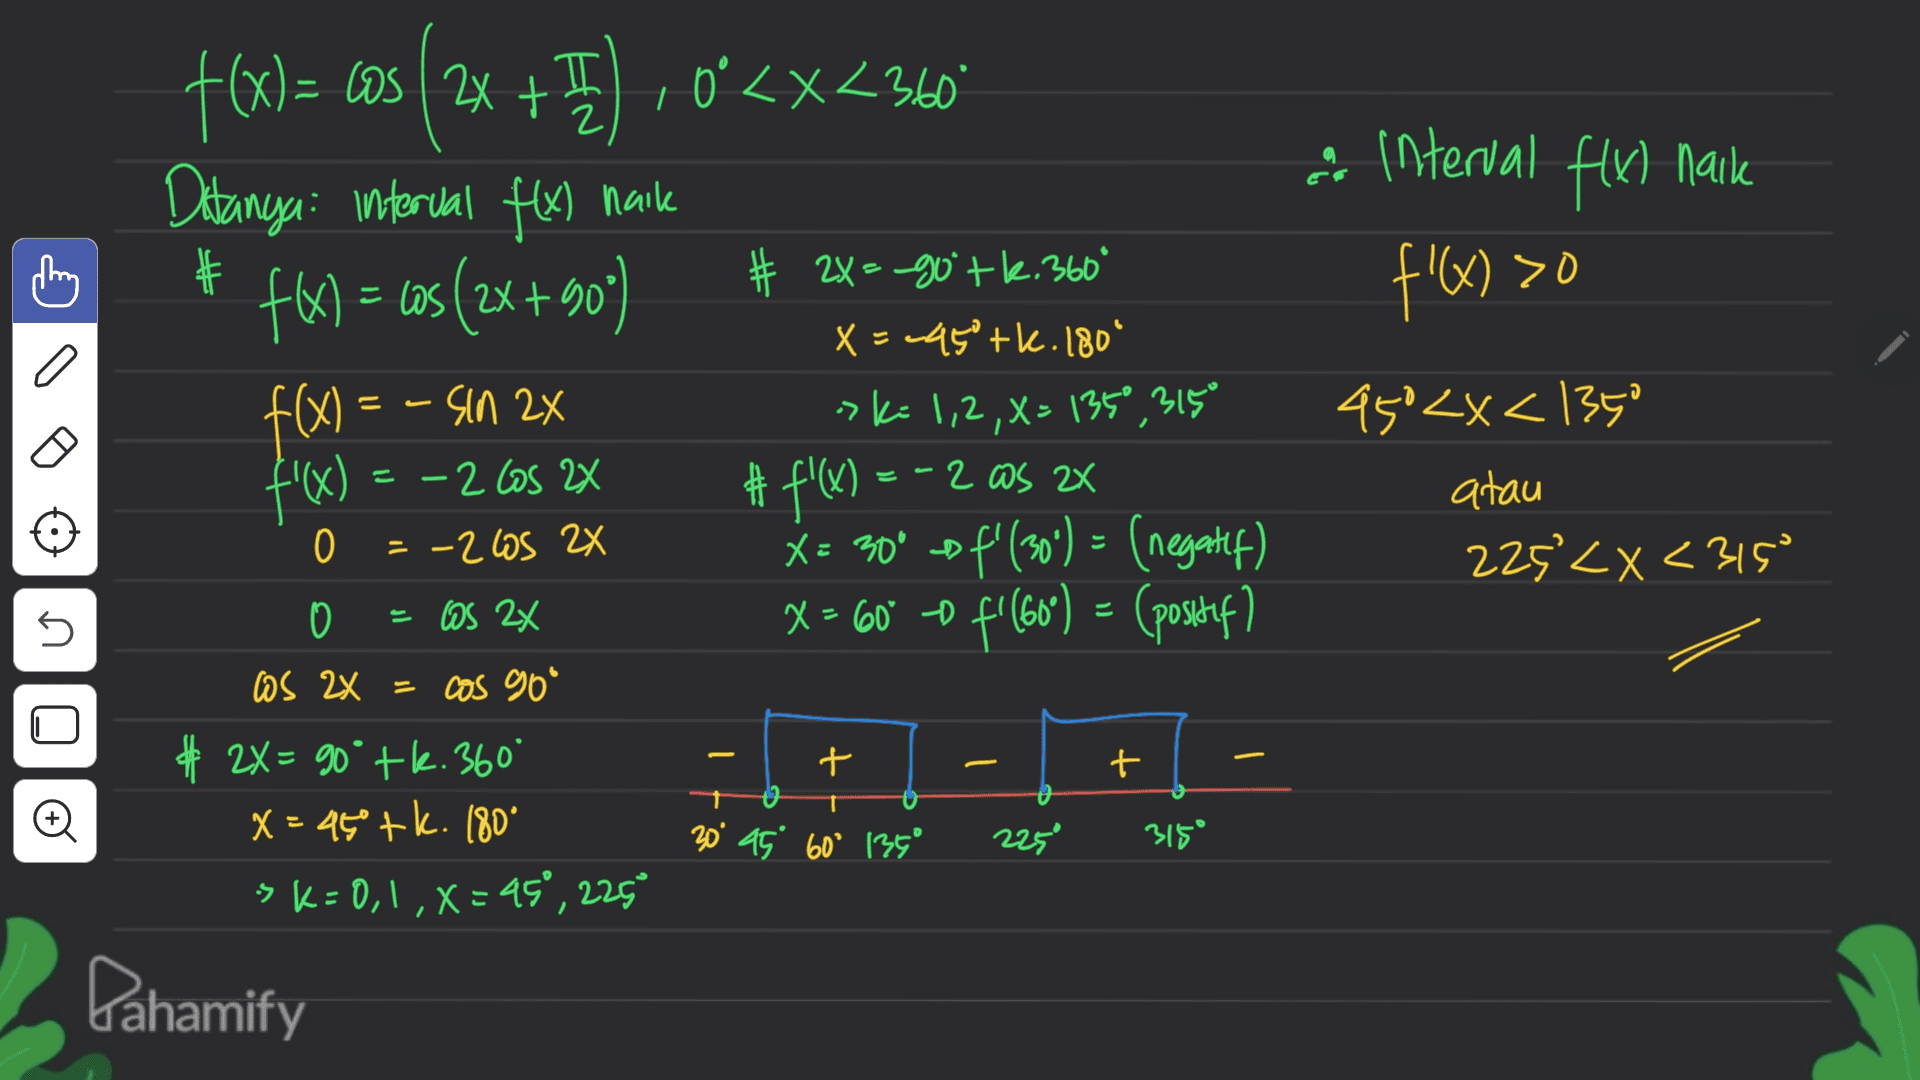 f(x) = cos (2x + π/2), 0° < x < 360°
Ditanya: interval f(x) naik
# f(x) = cos (2x + 90°)
f(x) = - sin 2x
f'(x) = -2 cos 2x
0 = -2 cos 2x
0 = cos 2x
cos 2x = cos 90°
# 2x = 90° + k. 360°
x = 45° + k. 180°
→ k = 0, 1, x = 45°, 225°
# 2x = -90° + k. 360°
x = -45° + k. 180°
→ k = 1, 2, x = 135°, 315°
# f'(x) = -2 cos 2x
x = 30° → f'(30°) = (negatif)
x = 60° → f'(60°) = (positif)
- + - + -
30° 45° 60° 135° 225° 315°
∴ Interval f(x) naik
f'(x) > 0
45° < x < 135°
atau
225° < x < 315°
Pahamify